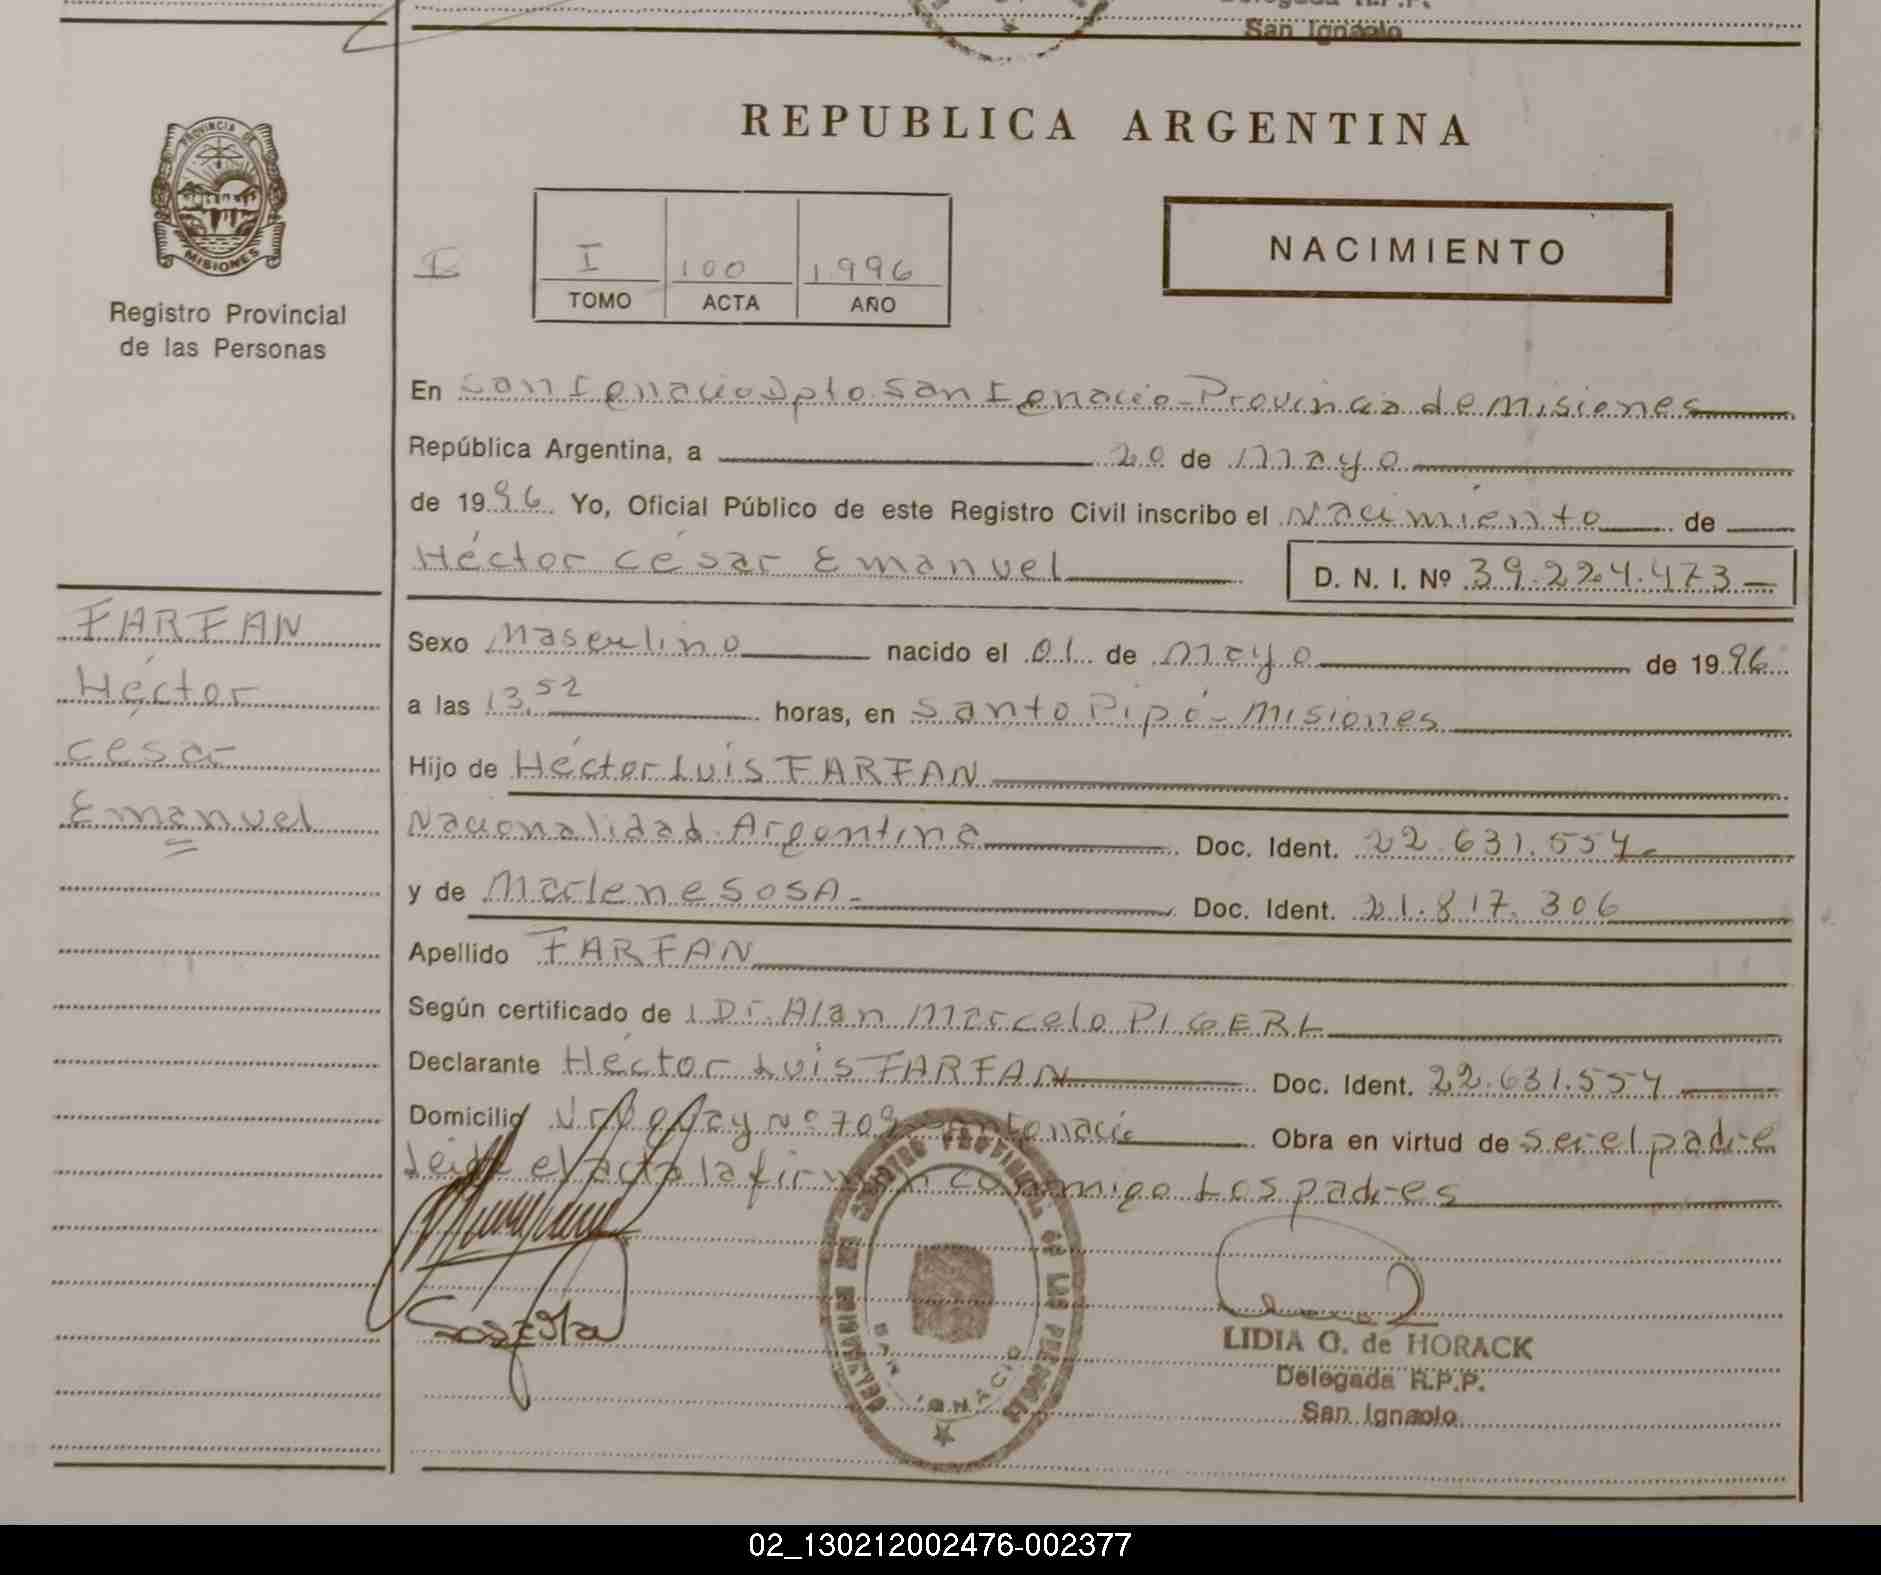 San Ignacio
REPUBLICA ARGENTINA
PROVINCIA DE
MISIONES
Registro Provincial
de las Personas
I 100 1996
TOMO ACTA AÑO
NACIMIENTO
En San Ignacio Dpto. San Ignacio - Provincia de Misiones
República Argentina, a 20 de mayo
de 1996 Yo, Oficial Público de este Registro Civil inscribo el Nacimiento de
Héctor César Emanuel D. N. I. Nº 39.224.473
FARFAN
Héctor
César
Emanuel
Sexo Masculino nacido el 01 de mayo de 1996
a las 13,52 horas, en Santo Pipó - Misiones
Hijo de Héctor Luis FARFAN
Nacionalidad Argentina Doc. Ident. 22.631.554
y de Marlene SOSA Doc. Ident. 21.817.306
Apellido FARFAN
Según certificado de l Dr. Alan Marcelo PIGERL
Declarante Héctor Luis FARFAN Doc. Ident. 22.631.554
Domicilio Uruguay Nº 709 Obra en virtud de ser el padre
Leida el acta la firman conmigo Los padres
SAN IGNACIO
LIDIA G. de HORACK
Delegada R.P.P.
San Ignacio
02_130212002476-002377